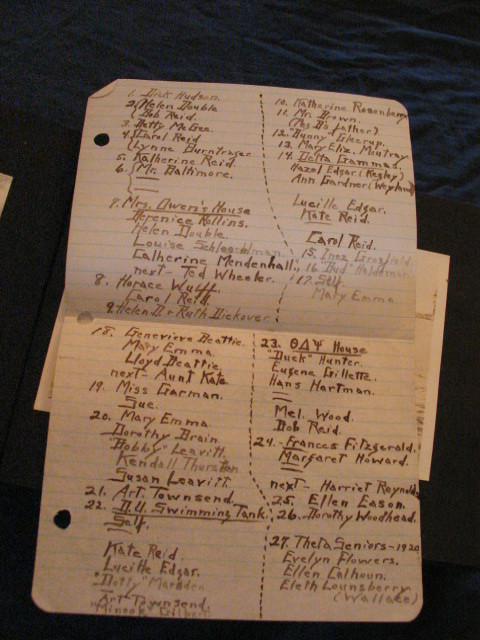 1. Dick Hudson.
2. Helen Double
Bob Reid.
3. Betty McGee.
4. Carol Reid
Lynne Burntrager
5. Katherine Reid.
6. Mr. Baltimore.
7. Mrs. Owen's House
Berenice Rollins.
Helen Double
Louise
Catherine Mendenhall,
next- Ted Wheeler.
8. Horace Wulff
Carol Reid
9. Helen D. & Ruth Dickover.
10. Katherine Rosenberry
11. Mr. Brown.
Father)
12. "Bunny" Gleerup.
13. Mary Eliz. Mintray
14. Delta Gammas.
Hazel Edgar (Kegley)
Ann Gardner (Weyland)
Lucille Edgar.
Kate Reid.
Carol Reid.
15. Inez
16. "Bud"
17. Self.
Mary Emma
18. Genevieve Beattie.
Mary Emma
Lloyd Beattie.
next- Aunt Kate
19. Miss Garman.
Sue.
20. Mary Emma
Dorothy Brain.
Bobby Leavitt.
Kendall Thurston
Susan Leavitt.
21. Art Townsend.
22. D.U. Swimming Tank.
Self.
Kate Reid.
Lucille Edgar.
"Dotty" Marsden
Art Townsend.
"Minook" Gilbert
23. ΘΔΨ House
"Duck" Hunter.
Eugene Gillette.
Hans Hartman.
Mel. Wood.
Bob Reid.
24. Frances Fitzgerald.
Margaret Howard.
next- Harriet Reynolds
25. Ellen Eason.
26. Dorothy Woodhead.
27. Theta Seniors-1920
Evelyn Flowers.
Ellen Calhoun.
Eleth Lounsberry
(Wallace)